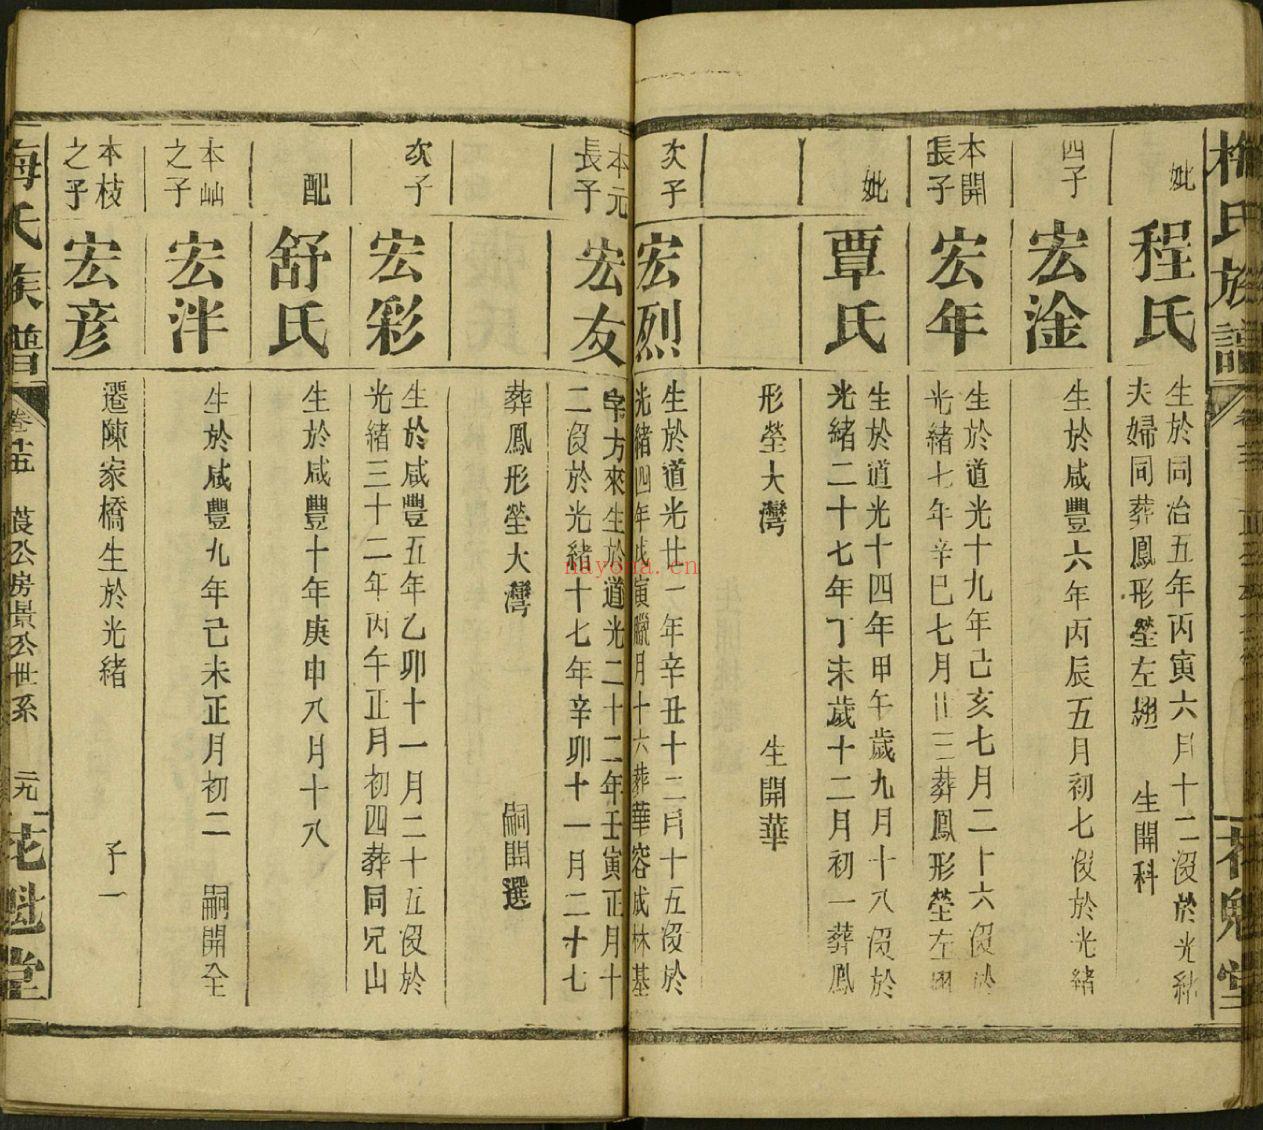 梅氏族譜
花魁堂
妣
程氏
生於同治五年丙寅六月十二沒於光緒
夫婦同葬鳳形塋左翅 生開科
四子
宏淦
生於咸豐六年丙辰五月初七沒於光緒
本開
長子
宏年
生於道光十九年己亥七月二十六沒於
光緒七年辛巳七月廿三葬鳳形塋左翅
妣
覃氏
生於道光十四年甲午歲九月十八沒於
光緒二十七年丁未歲十二月初一葬鳳
形塋大灣 生開華
次子
宏烈
生於道光廿一年辛丑十二月十五沒於
光緒四年戊寅臘月十六葬華容城林基
本元
長子
宏友
字方來生於道光二十二年壬寅正月十
二沒於光緒十七年辛卯十一月二十七
葬鳳形塋大灣 嗣開選
次子
宏彩
生於咸豐五年乙卯十一月二十五沒於
光緒三十二年丙午正月初四葬同兄山
配
舒氏
生於咸豐十年庚申八月十八
本屾
之子
宏泮
生於咸豐九年己未正月初二 嗣開全
本枝
之子
宏彥
遷陳家橋生於光緒 子一
梅氏族譜
卷廿五 萇公房景公世系 元
花魁堂
nayona.cn